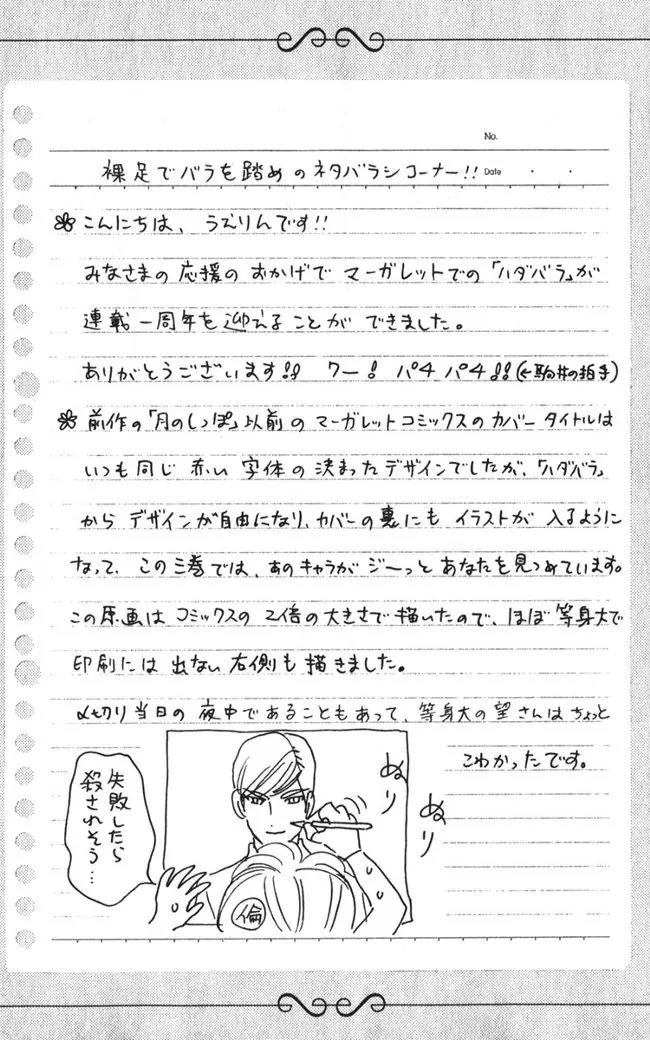 No.
裸足でバラを踏めのネタバラシコーナー!!
Date
こんにちは、うえりんです!!
みなさまの応援のおかげでマーガレットでの「ハダバラ」が
連載一周年を迎えることができました。
ありがとうございます!! ワー! パチパチ!!(←駒井の拍手)
前作の「月のしっぽ」以前のマーガレットコミックスのカバータイトルは
いつも同じ赤い字体の決まったデザインでしたが、「ハダバラ」
からデザインが自由になり、カバーの裏にもイラストが入るように
なって、この三巻では、あのキャラがジーっとあなたを見つめています。
この原画はコミックスの2倍の大きさで描いたので、ほぼ等身大で
印刷には出ない右側も描きました。
〆切り当日の夜中であることもあって、等身大の望さんはちょっと
こわかったです。
ぬり
ぬり
失敗したら
殺されそう…
倫